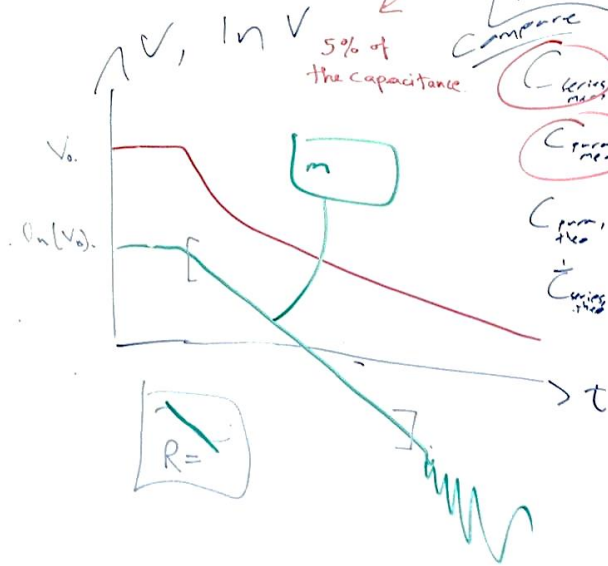 V, ln V
5% of
the capacitance
Compare
C series,
meas
C para
meas
C para,
theo
C series
theo
V₀.
ln(V₀).
m
t
R=